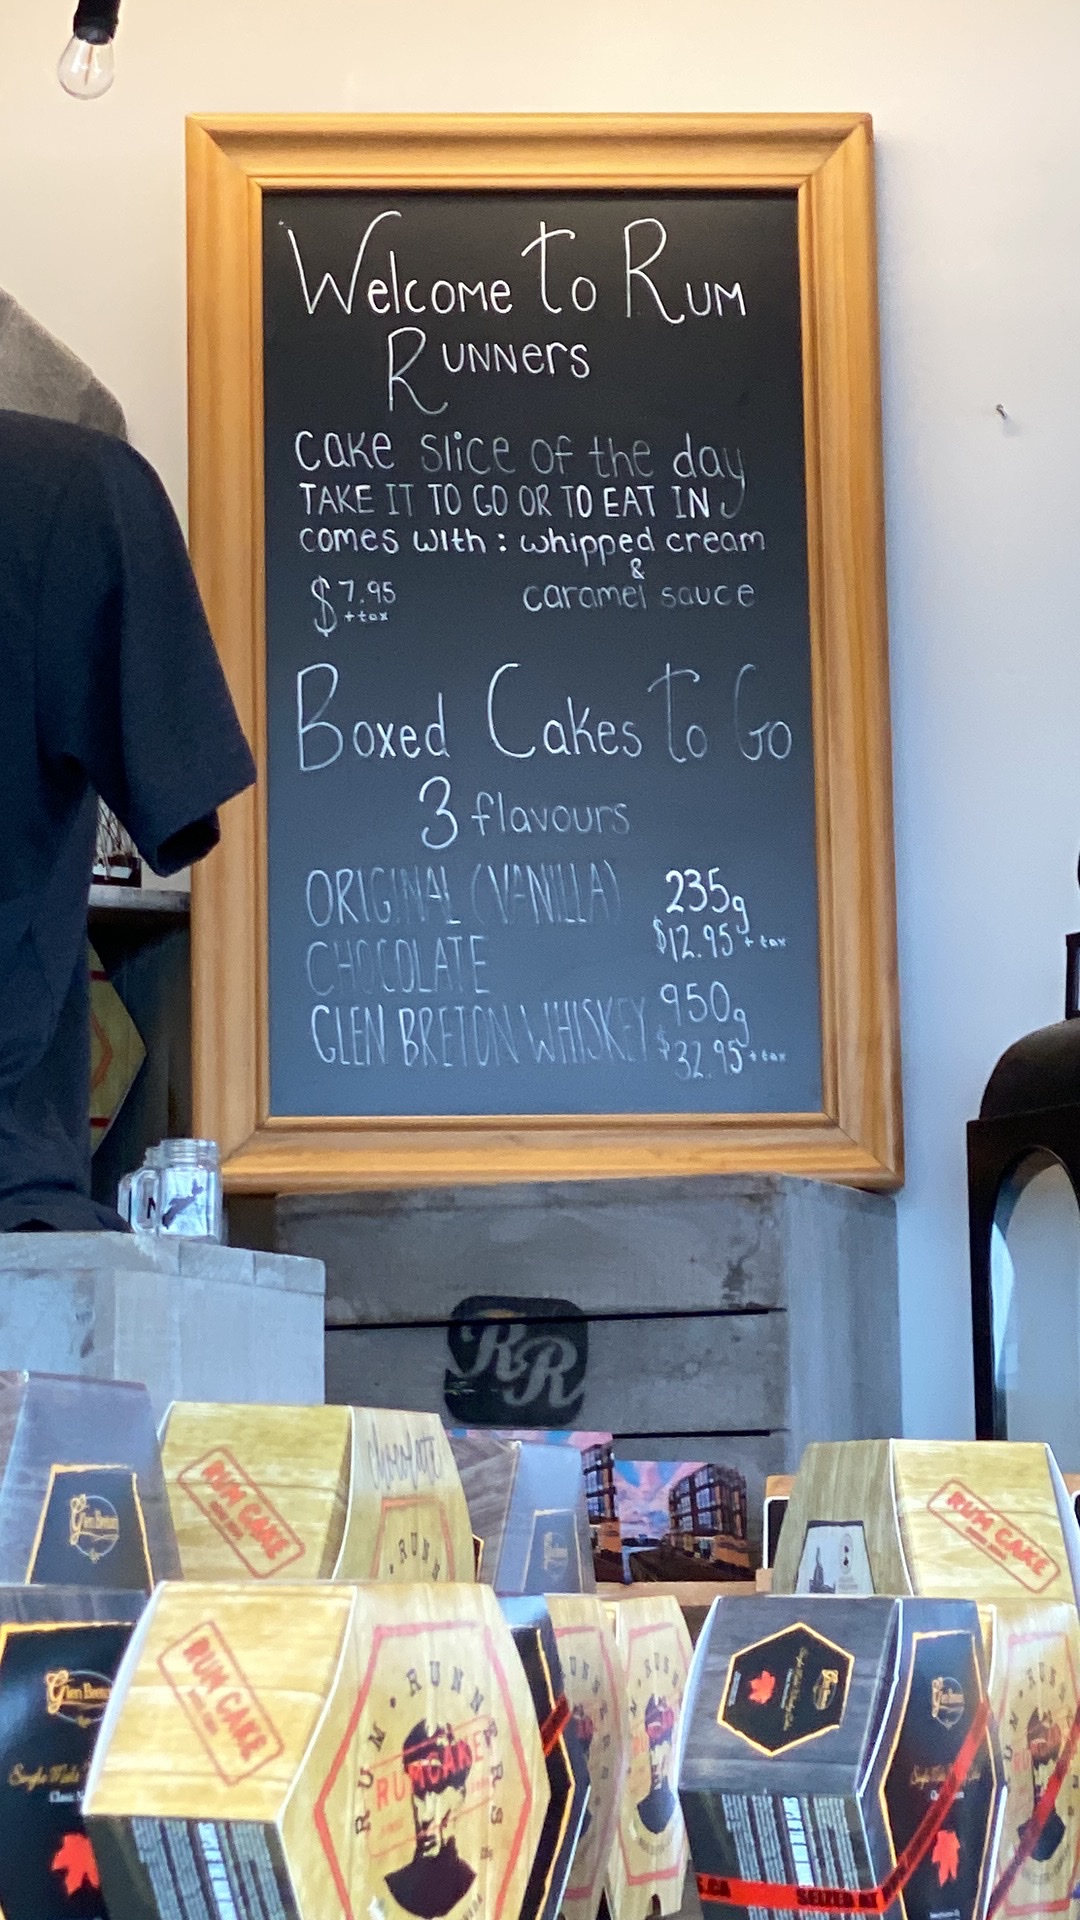 Welcome to Rum
Runners
cake slice of the day
TAKE IT TO GO OR TO EAT IN
comes with: whipped cream
&
$7.95 caramel sauce
+tax
Boxed Cakes to Go
3 flavours
ORIGINAL (VANILLA) 235g
$12.95 + tax
CHOCOLATE
950g
GLEN BRETON WHISKEY
$32.95 + tax
RR
Glen Breton
RUM CAKE
chocolate
RUNN
RUM CAKE
Glen Breton
RUM CAKE
RUM RUNNERS
RUM CAKE
Glen Breton
Glen Breton
RUM
SEIZED AT
.CA